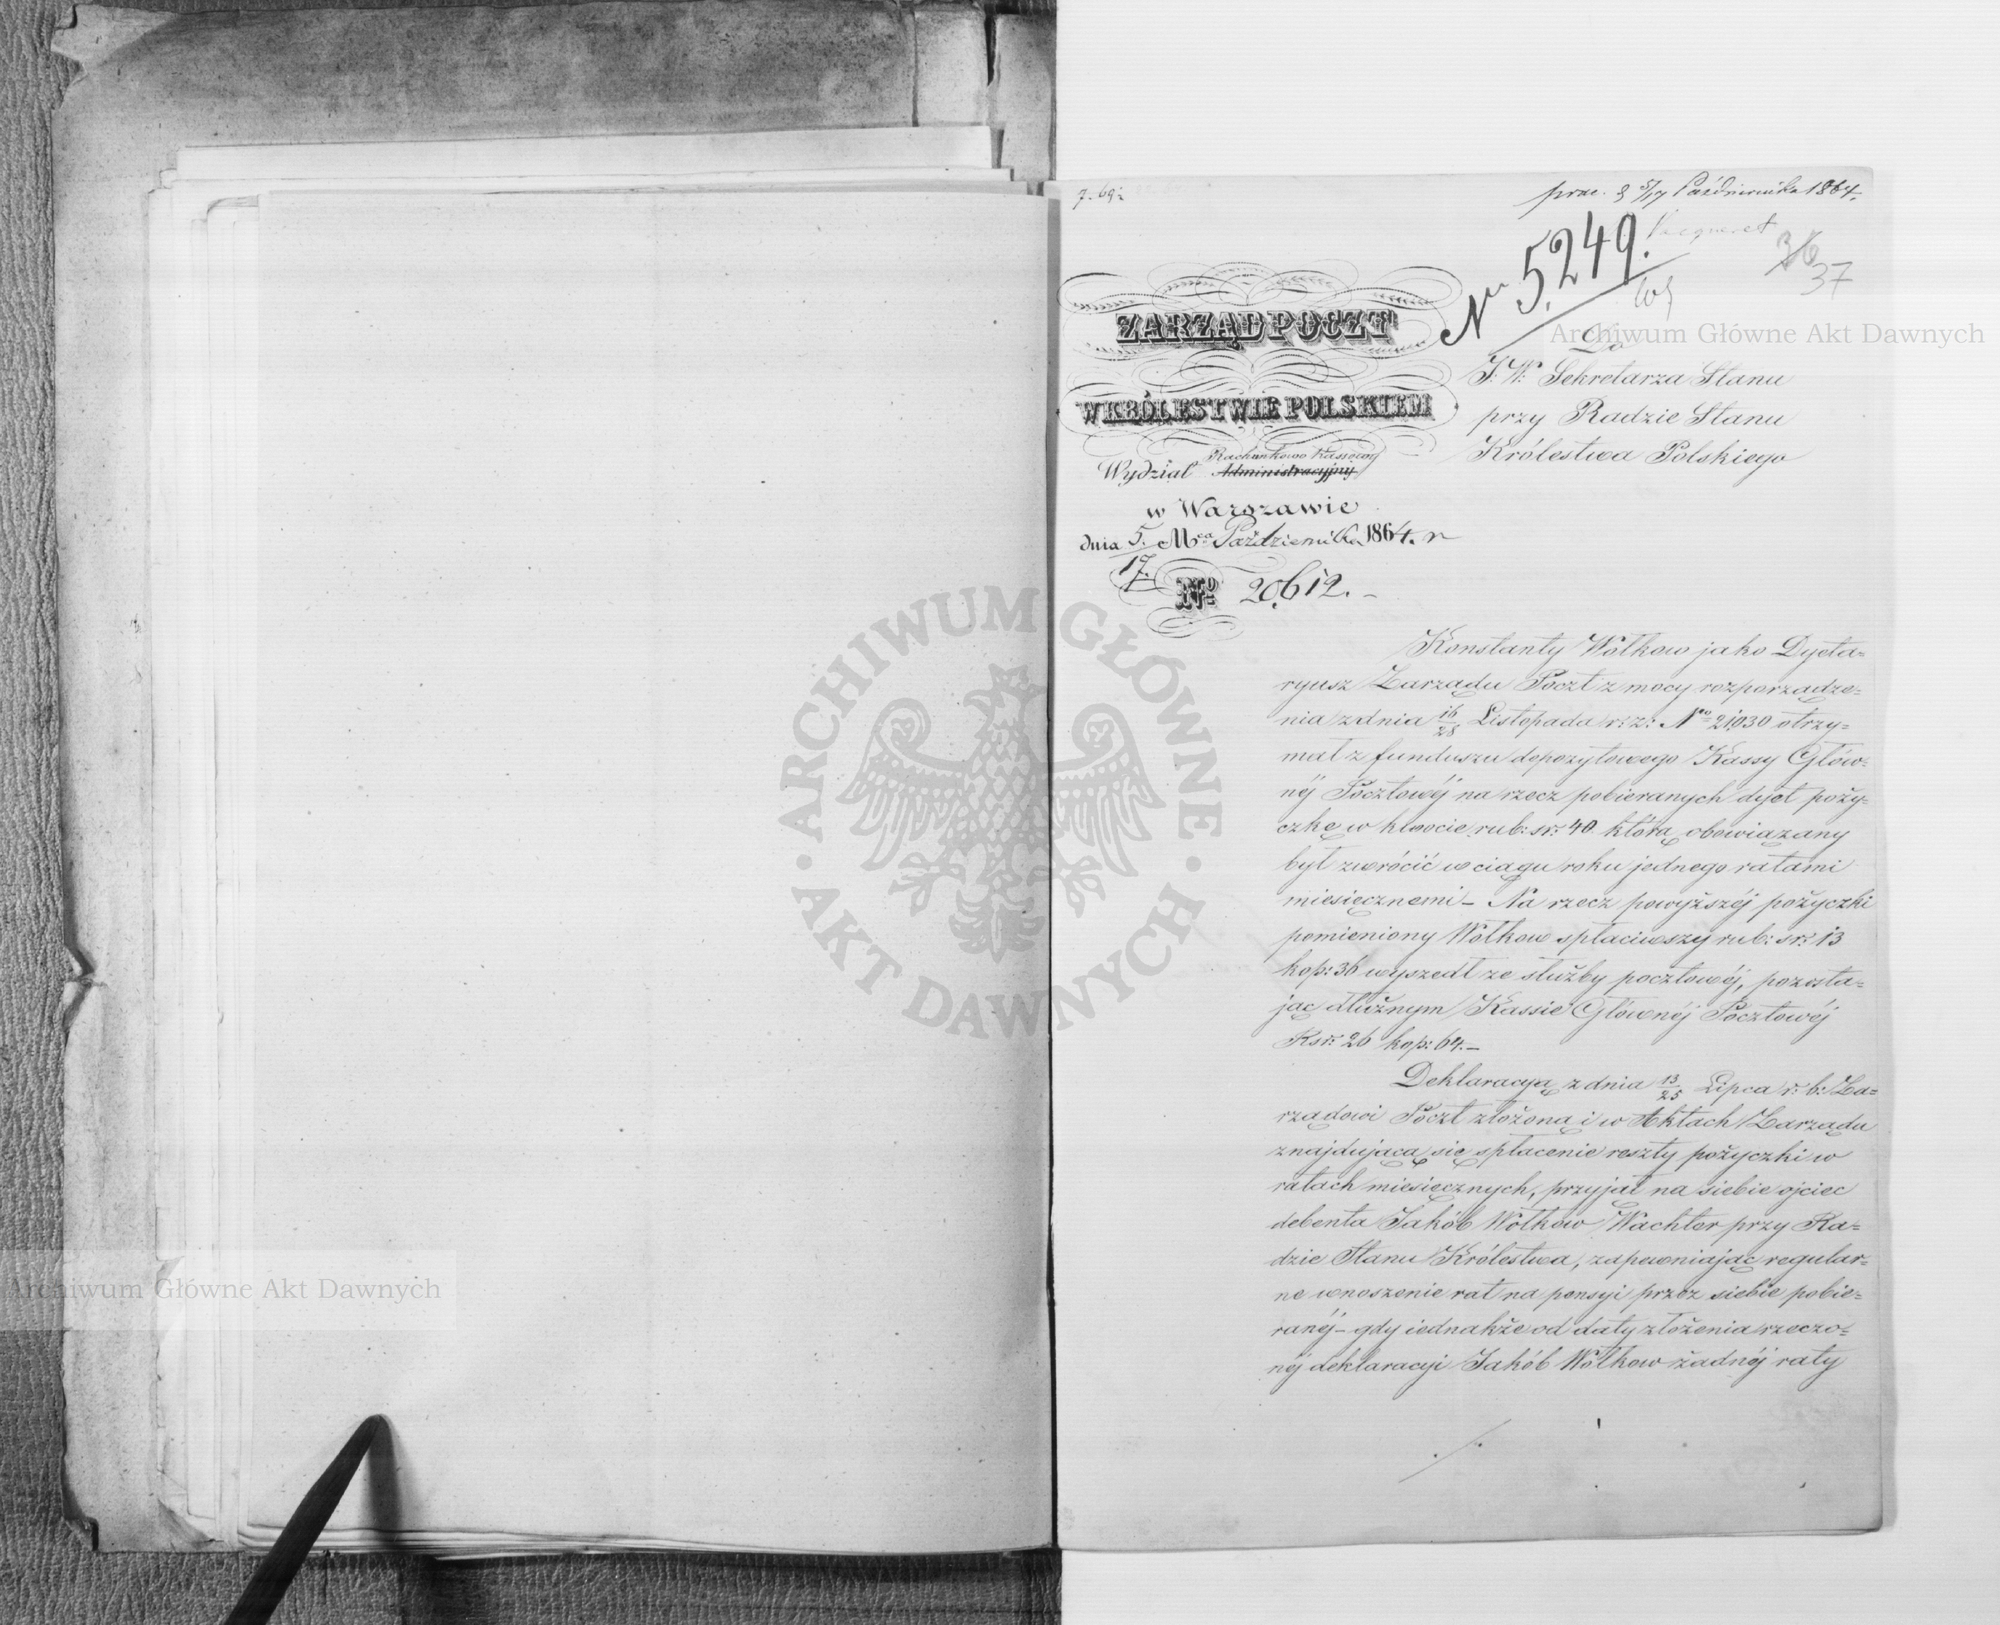 7. 69:
prae. d 5/17 Października 1864.
Nro 5,249.
36
37
ZARZĄD POCZT
W KRÓLESTWIE POLSKIEM
Rachunkowo Kassowy
Wydział Administracyjny
w Warszawie
dnia 5. Mca Października 1864. r
17.
No 20,612. –
Do
J: W: Sekretarza Stanu
przy Radzie Stanu
Królestwa Polskiego
Konstanty Wołkow jako Dyeta=
ryusz Zarządu Poczt z mocy rozporządze=
nia z dnia 16/28 Listopada r: z: Nro 21,930 otrzy=
mał z funduszu depozytowego Kassy Głów=
néj Pocztowéj na rzecz pobieranych dyet poży=
czkę w kwocie rub: sr: 40 którą obowiązany
był zwrócić w ciągu roku jednego ratami
miesięcznemi – Na rzecz powyższéj pożyczki
pomieniony Wołkow spłaciwszy rub: sr: 13
kop: 36 wyszedł ze służby pocztowéj, pozosta=
jąc dłużnym Kassie Głównéj Pocztowéj
Rsr: 26 kop: 64. –
Deklaracyą z dnia 13/25 Lipca r: b: Za=
rządowi Poczt złożoną i w Aktach Zarządu
znajdującą się spłacenie reszty pożyczki w
ratach miesięcznych, przyjął na siebie ojciec
debenta Jakób Wołkow Wachter przy Ra=
dzie Stanu Królestwa, zapewniając regular=
ne wnoszenie rat na pensyi przez siebie pobie=
ranéj – gdy iednakże od daty złożenia rzeczo=
néj deklaracyi Jakób Wołkow żadnéj raty
./.
ARCHIWUM GŁÓWNE · AKT DAWNYCH ·
Archiwum Główne Akt Dawnych
Archiwum Główne Akt Dawnych